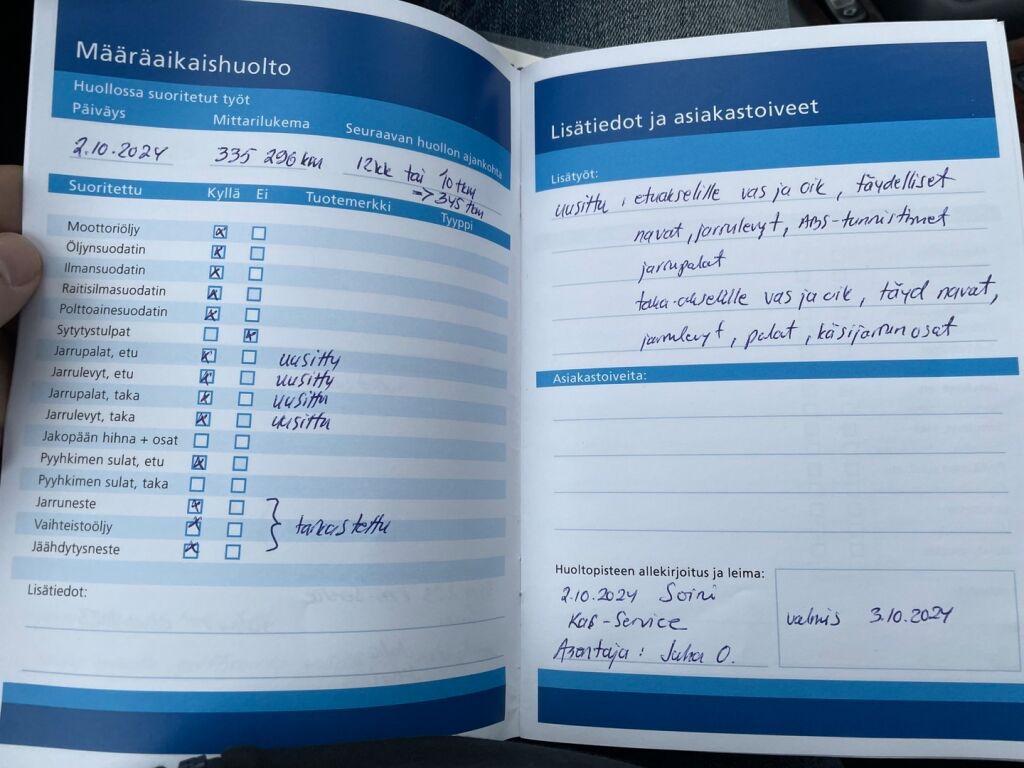 Määräaikaishuolto
Huollossa suoritetut työt
Päiväys Mittarilukema Seuraavan huollon ajankohta
2.10.2024 335 296 km 12kk tai 10 tkm
=> 345 tkm
Suoritettu Kyllä Ei Tuotemerkki Tyyppi
Moottoriöljy x
Öljynsuodatin x
Ilmansuodatin x
Raitisilmasuodatin x
Polttoainesuodatin x
Sytytystulpat x
Jarrupalat, etu x uusittu
Jarrulevyt, etu x uusittu
Jarrupalat, taka x uusittu
Jarrulevyt, taka x uusittu
Jakopään hihna + osat
Pyyhkimen sulat, etu x
Pyyhkimen sulat, taka
Jarruneste x
Vaihteistoöljy x } tarkastettu
Jäähdytysneste x
Lisätiedot:
Lisätiedot ja asiakastoiveet
Lisätyöt:
uusittu : etuakselille vas ja oik, täydelliset
navat, jarrulevyt, ABS-tunnistimet
jarrupalat
taka-akselille vas ja oik, täyd navat,
jarrulevyt, palat, käsijarrun osat
Asiakastoiveita:
Huoltopisteen allekirjoitus ja leima:
2.10.2024 Soini
KaS-Service
Asentaja: Juha O.
valmis 3.10.2024